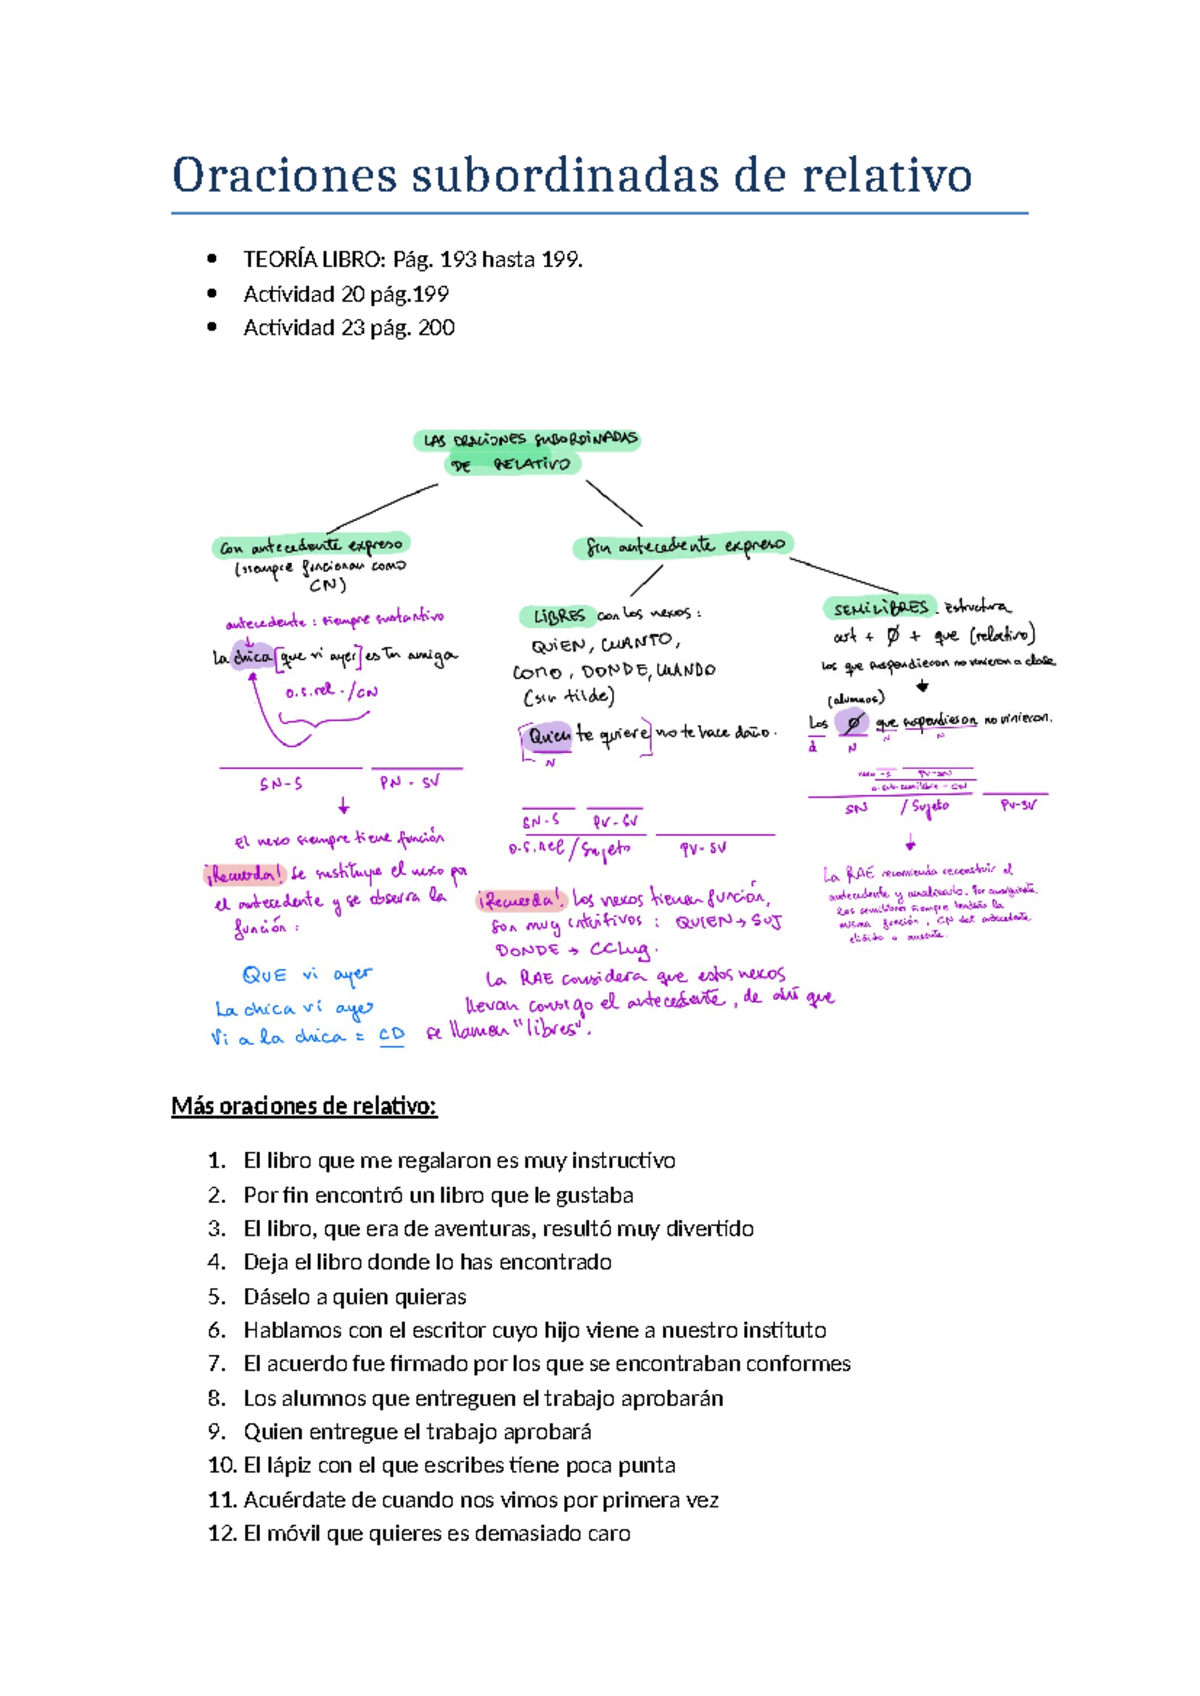 Oraciones subordinadas de relativo
• TEORÍA LIBRO: Pág. 193 hasta 199.
• Actividad 20 pág.199
• Actividad 23 pág. 200
LAS ORACIONES SUBORDINADAS
DE RELATIVO
Con antecedente expreso
(siempre funcionan como
CN)
antecedente: siempre sustantivo
La chica [que vi ayer] es tu amiga
O.S.rel./CN
SN-S PN-SV
El nexo siempre tiene función
¡Recuerda! Se sustituye el nexo por
el antecedente y se observa la
función:
QUE vi ayer
La chica vi ayer
Vi a la chica = CD
Sin antecedente expreso
LIBRES con los nexos:
QUIEN, CUANTO,
COMO, DONDE, CUANDO
(sin tilde)
[Quien te quiere] no te hace daño.
N
SN-S PV-SV
O.S.Rel/Sujeto PV-SV
¡Recuerda! Los nexos tienen función,
son muy intuitivos: QUIEN → SUJ
DONDE → CCLug.
La RAE considera que estos nexos
llevan consigo el antecedente, de ahí que
se llamen "libres".
SEMILIBRES. Estructura
art + Ø + que (relativo)
Los que suspendieron no vinieron a clase
(alumnos)
Los Ø que suspendieron no vinieron.
d N N N
nexo-S PV-SV
O.Sub semilibre-CN
SN /Sujeto PV-SV
La RAE recomienda reconstruir el
antecedente y analizarlo. Por consiguiente,
las semilibres siempre tendrán la
misma función, CN del antecedente
elidido o ausente.
Más oraciones de relativo:
1. El libro que me regalaron es muy instructivo
2. Por fin encontró un libro que le gustaba
3. El libro, que era de aventuras, resultó muy divertido
4. Deja el libro donde lo has encontrado
5. Dáselo a quien quieras
6. Hablamos con el escritor cuyo hijo viene a nuestro instituto
7. El acuerdo fue firmado por los que se encontraban conformes
8. Los alumnos que entreguen el trabajo aprobarán
9. Quien entregue el trabajo aprobará
10. El lápiz con el que escribes tiene poca punta
11. Acuérdate de cuando nos vimos por primera vez
12. El móvil que quieres es demasiado caro